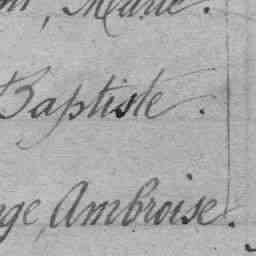 , Marie.
Baptiste.
ge, Ambroise.